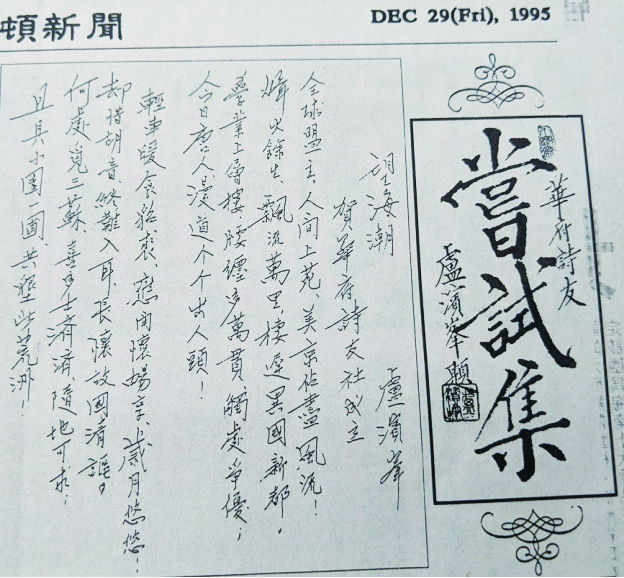 頓新聞
DEC 29(Fri), 1995
華府詩友
嘗試集
盧濱峯題
望海潮 盧濱峯
賀華府詩友社成立
全球盟主、人间上苑、美京佔盡風流！
烽火餘生、飄流萬里、棲遲異國新都。
學業上層樓、腰纏多萬貫、觸處爭優；
今日唐人漫道个个出人頭！
輕車暖食貂裘、應開懷暢享、歲月悠悠！
却惜胡音、終難入耳、長懷故國清謳。
何處覓三蘇、喜多士濟濟、隨地可求；
且具小園一圃、共墾此荒洲！